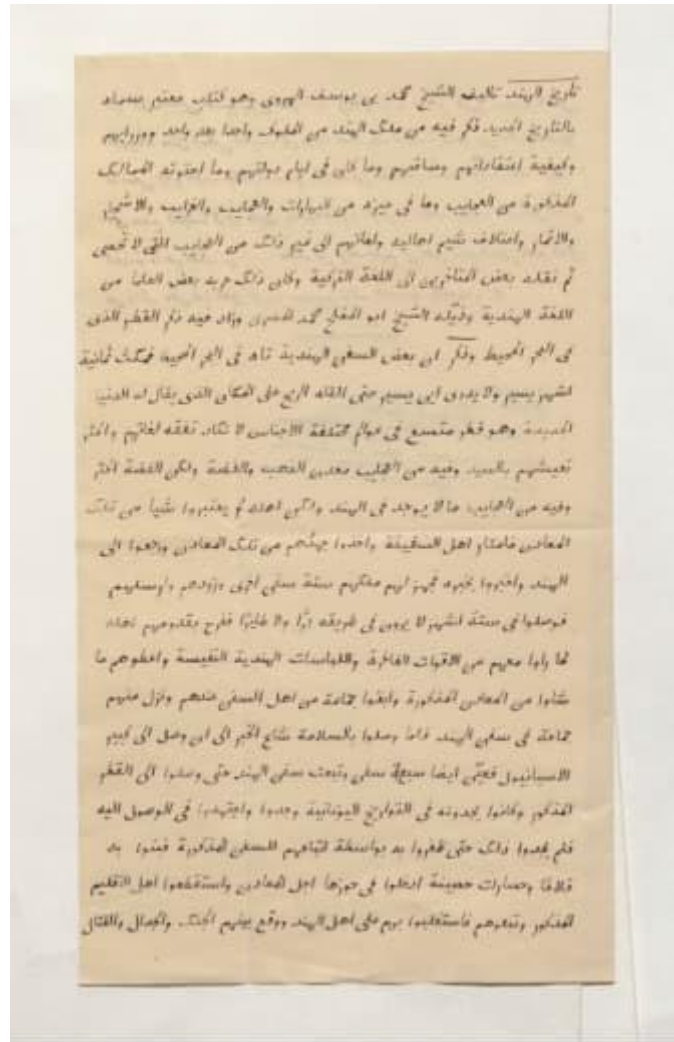 تأريخ الهند تأليف الشيخ محمد بن يوسف الهروي وهو كتاب معتبر يسماه
بالتاريخ الجديد ذكر فيه من ملك الهند من الملوك واحدا بعد واحد ووزرايهم
وكيفية اعتقاداتهم ومسافتهم وما كان في ايام دولتهم وما احتوته الممالك
المذكورة من العجايب وما في حيزه من البهارات والعجايب والغرايب والاشجار
والاثمار واختلاف شيم اهاليه ولغاتهم الى غير ذلك من العجايب التي لا تحصى
ثم نقله بعض المتأخرين الى اللغة التركية وكان ذلك عربه بعض العلما من
اللغة الهندية وذيّله الشيخ ابو المفلح محمد المصري وزاد فيه ذكر القطر الذى
في البحر المحيط وذكر ان بعض السفن الهندية تاه في البحر المحيط فمكث ثمانية
اشهر يسير ولا يدرى اين يسير حتى القاه الريح على المكان الذى يقال له الدنيا
الجديدة وهو قطر متسع فى عوالم مختلفة الاجناس لا تكاد تفقه لغاتهم واكثر
تعيشهم بالصيد وفيه من العجايب معدن الذهب والفضة ولكن الفضة اكثر
وفيه من العجايب ما لا يوجد فى الهند ولكن اهله لم يعتبروا شيأ من تلك
المعادن فامتار اهل السفينة واخذوا جهدهم من تلك المعادن ورجعوا الى
الهند واخبروا بخبره فجهز لهم ملكهم ستة سفن اخرى وزودهم وارسلهم
فوصلوا في ستة اشهر لا يرون فى طريقه برًّا ولا طايرًا ففرح بقدومهم اهله
لما راوا معهم من الاقوات الفاخرة واللباسات الهندية النفيسة واعطوهم ما
شاوا من المعادن المذكورة وابقوا جماعة من اهل السفن عندهم ونزل منهم
جماعة فى سفن الهند فلما وصلوا بالسلامة شاع الخبر الى ان وصل الى كبير
الاسبانيول فعيّن ايضا سبعة سفن وتبعت سفن الهند حتى وصلوا الى القطر
المذكور وكانوا يجدونه فى التواريخ اليونانية وجدوا واجتهدوا فى الوصول اليه
فلم يجدوا ذلك حتى ظفروا به بواسطة اتباعهم للسفن المذكورة فبنوا به
قلاعًا وحصارات حصينة ادخلوا فى حوزها اجل المعادن واستقطعوا اهل الاقليم
المذكور وتبعوهم فاستغلبوا بهم على اهل الهند ووقع بينهم الجنك والجدال والقتال